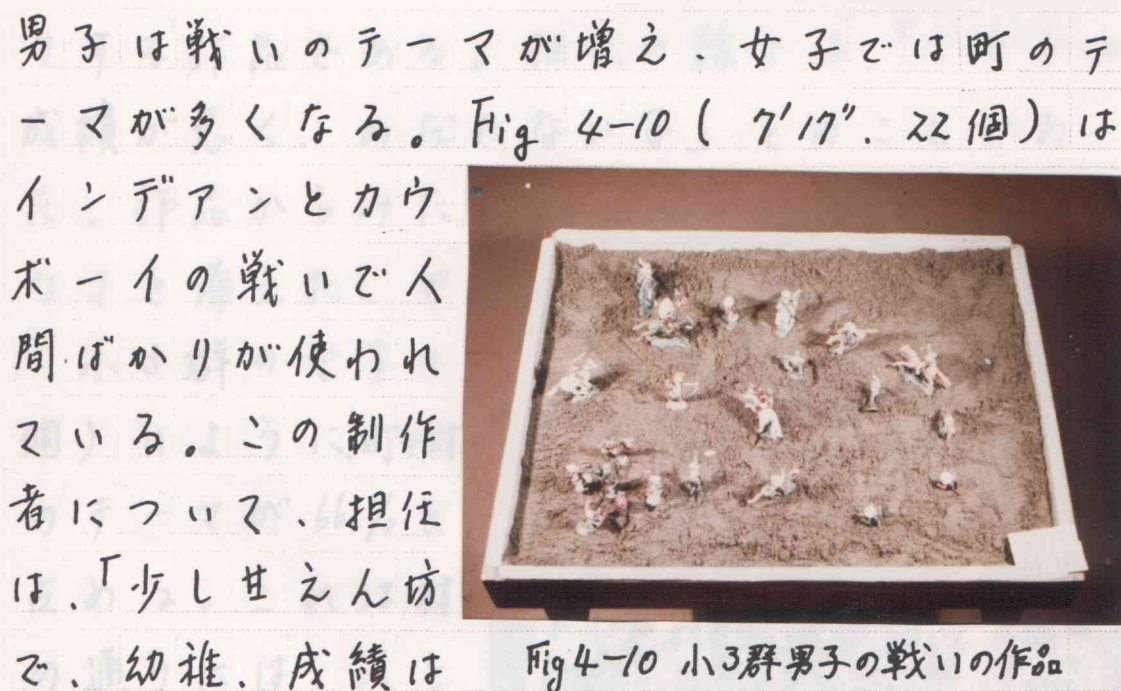 男子は戦いのテーマが増え、女子では町のテ
ーマが多くなる。Fig 4-10 ( 7'17". 22個) は
インデアンとカウ
ボーイの戦いで人
間ばかりが使われ
ている。この制作
者について、担任
は、「少し甘えん坊
で、幼稚、成績は
Fig 4-10 小3群男子の戦いの作品